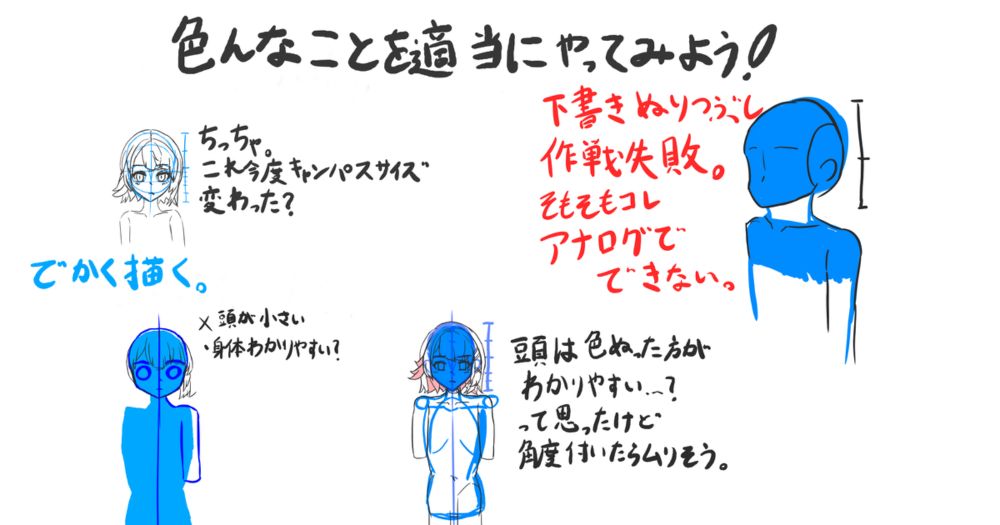 色んなことを適当にやってみよう!
ちっちゃ。
これ今度キャンパスサイズ
変わった?
下書きぬりつぶし
作戦失敗。
そもそもコレ
アナログで
できない。
でかく描く。
×頭が小さい
・身体わかりやすい?
頭は色ぬった方が
わかりやすい…?
って思ったけど
角度付いたらムリそう。